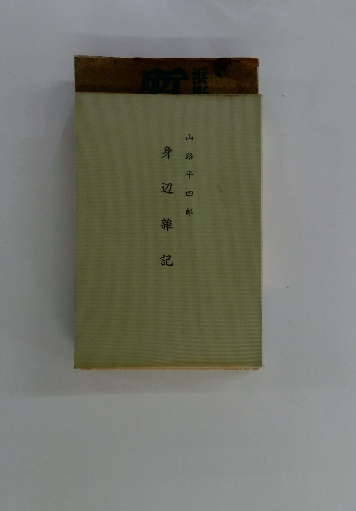 山路平四郎
身辺雑記